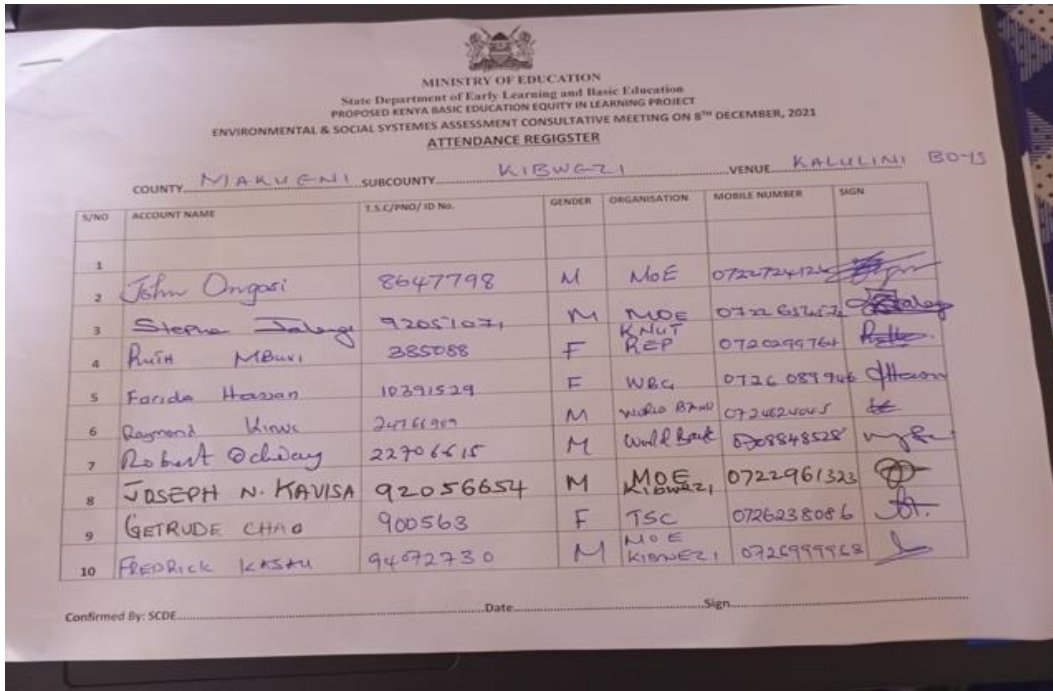 MINISTRY OF EDUCATION
State Department of Early Learning and Basic Education
PROPOSED KENYA BASIC EDUCATION EQUITY IN LEARNING PROJECT
ENVIRONMENTAL & SOCIAL SYSTEMES ASSESSMENT CONSULTATIVE MEETING ON 8TH DECEMBER, 2021
ATTENDANCE REGIGSTER
COUNTY MAKUENI SUBCOUNTY KIBWEZI VENUE KALULINI BOYS
S/NO ACCOUNT NAME T.S.C/PNO/ ID No. GENDER ORGANISATION MOBILE NUMBER SIGN
1
2 John Ongasi 8647798 M MoE
3 92051071 M MOE
4 Ruth MBuvi 385088 F KNUT REP 0720299764
5 Farida Hassan 10391529 F WBG 0726 089946
6 Raymond M WORLD BANK
7 Robert Ochieng 22706615 M World Bank 0708848528
8 JOSEPH N. KAVISA 92056654 M MOE Kibwezi 0722961323
9 GETRUDE CHAO 900563 F TSC 0726238086
10 FREDRICK 94072730 M MOE KIBWEZI 0726999968
Confirmed By: SCDE Date Sign